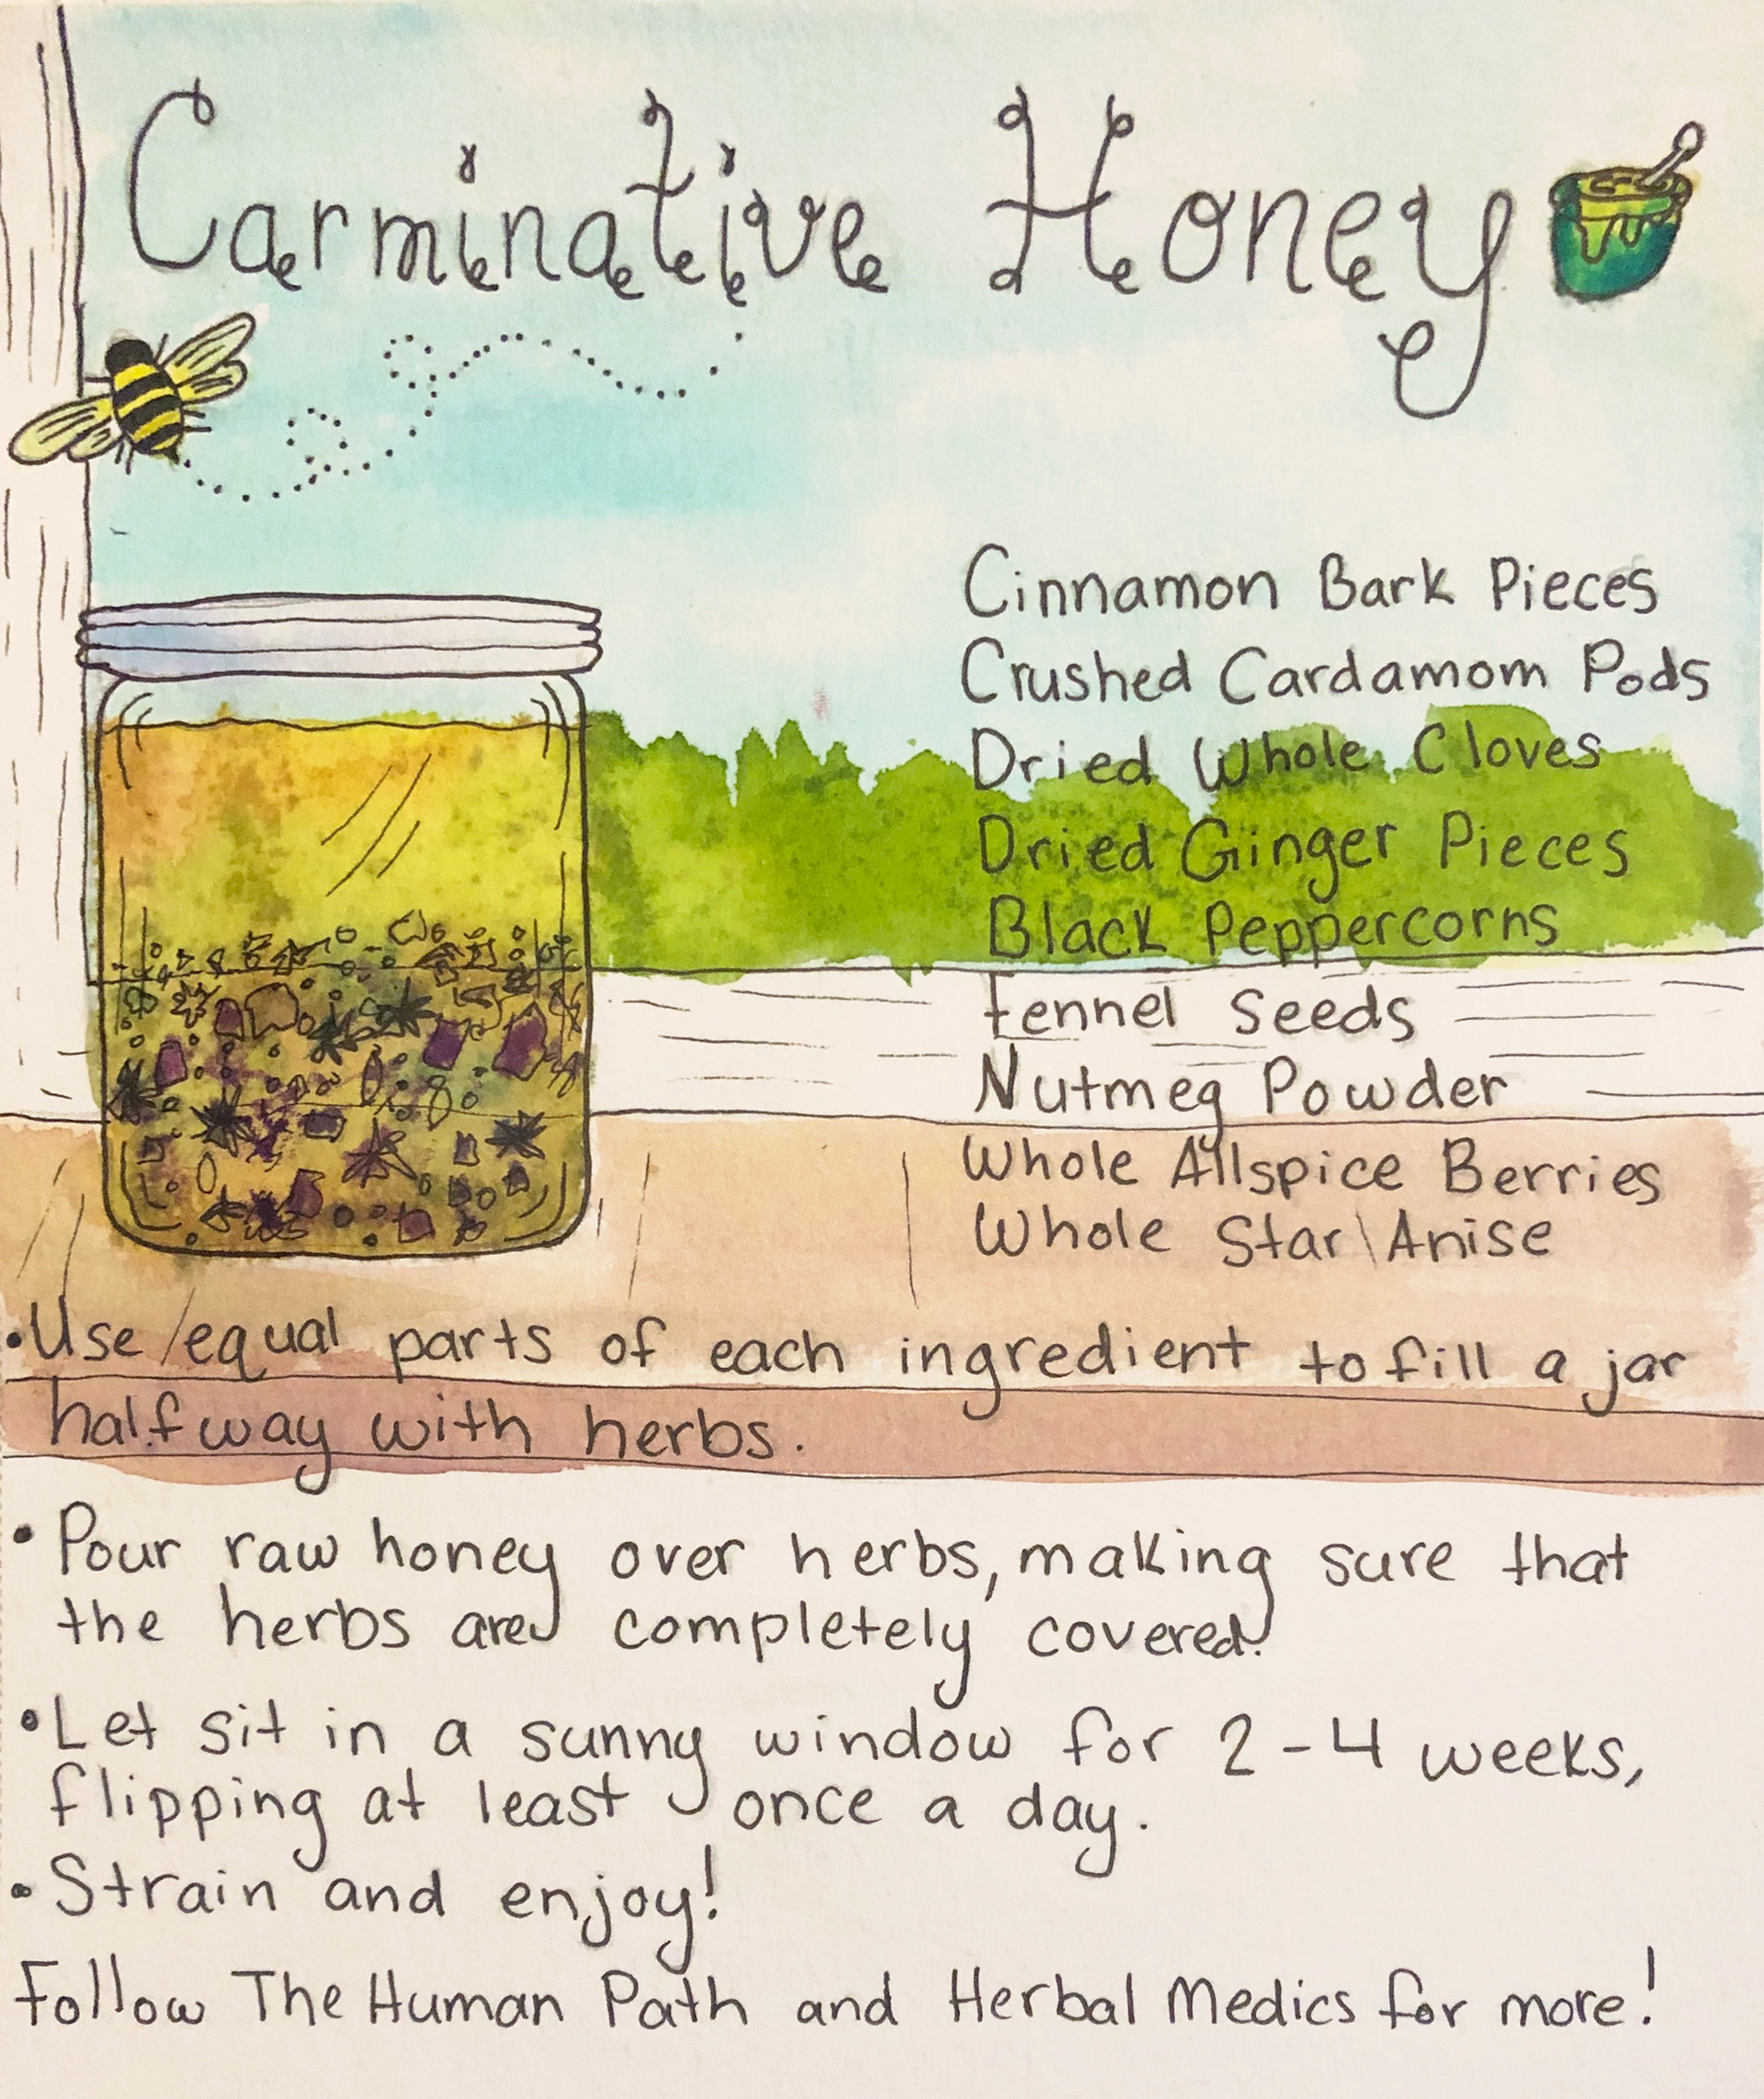 Carminative Honey
Cinnamon Bark Pieces
Crushed Cardamom Pods
Dried Whole Cloves
Dried Ginger Pieces
Black Peppercorns
Fennel Seeds
Nutmeg Powder
Whole Allspice Berries
Whole Star Anise
•Use equal parts of each ingredient to fill a jar
halfway with herbs.
•Pour raw honey over herbs, making sure that
the herbs are completely covered.
•Let sit in a sunny window for 2-4 weeks,
flipping at least once a day.
•Strain and enjoy!
Follow The Human Path and Herbal Medics for more!